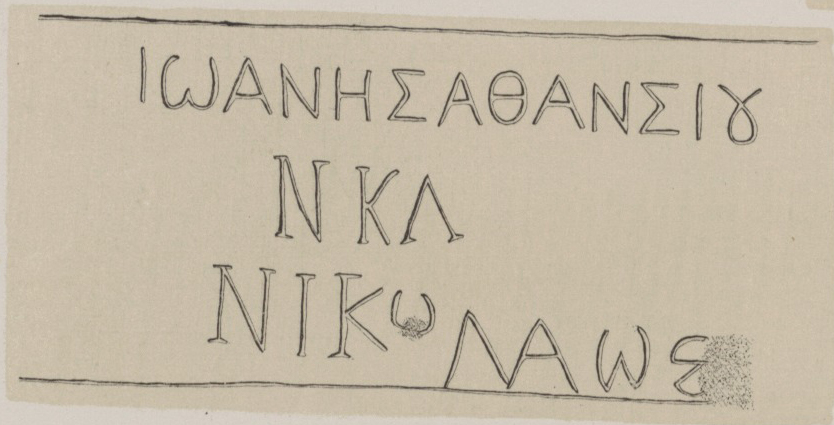 ΙΩΑΝΗΣΑΘΑΝΣΙȢ
ΝΚΛ
ΝΙΚΟΛΑΩΣ